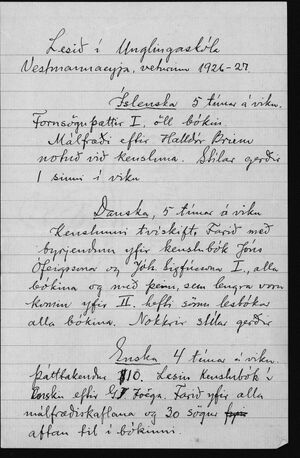 Lesið í Unglingaskóla
Vestmannaeyja, veturinn 1926-27.
Íslenska 5 tímar á viku.
Fornsöguþættir I. öll bókin.
Málfræði eftir Halldór Briem
notuð við kensluna. Stílar gerðir
1 sinni í viku
Danska, 5 tímar á viku
Kenslunni tvískift. Farið með
byrjendum yfir kenslubók Jóns
Ófeigssonar og Jóh. Sigfússonar I., alla
bókina og með þeim, sem lengra voru
komin yfir II. hefti sömu lesbókar
alla bókina. Nokkrir stílar gerðir
Enska 4 tímar á viku.
Þátttakendur 10. Lesin Kenslubók í
Ensku eftir G. Zöega. Farið yfir alla
málfræðiskaflana og 30 sögur
aftan til í bókinni.